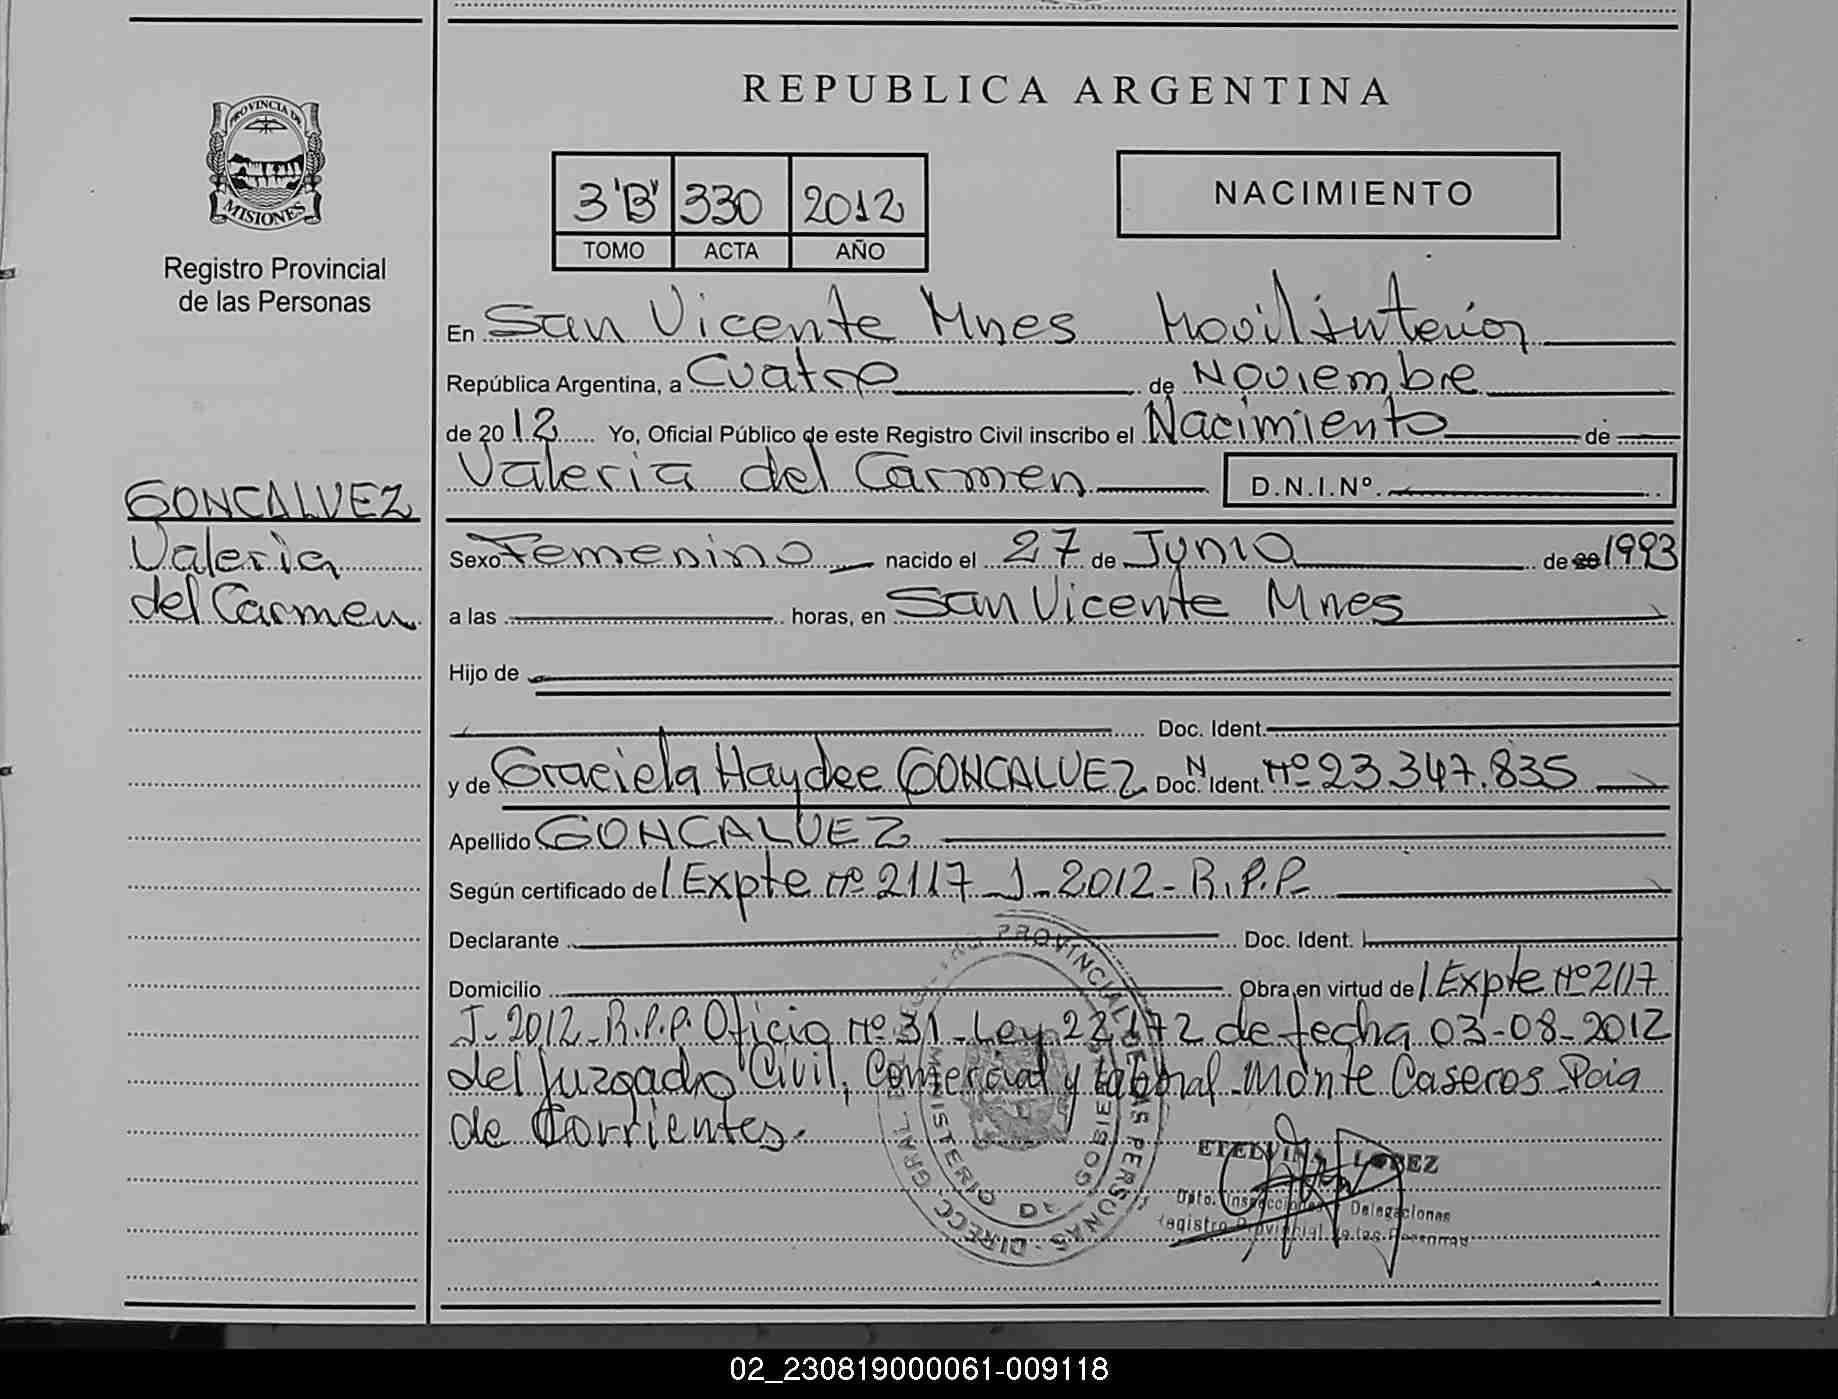 REPUBLICA ARGENTINA
PROVINCIA DE
MISIONES
Registro Provincial
de las Personas
3 "B" 330 2012
TOMO ACTA AÑO
NACIMIENTO
En San Vicente Mnes Movil Interior
República Argentina, a Cuatro de Noviembre
de 2012 Yo, Oficial Público de este Registro Civil inscribo el Nacimiento de
Valeria del Carmen D.N.I.Nº.
GONCALVEZ
Valeria
del Carmen
Sexo Femenino nacido el 27 de Junio de 20 1993
a las horas, en San Vicente Mnes
Hijo de
Doc. Ident.
y de Graciela Haydee GONCALVEZ Doc. N Ident. Nº 23.347.835
Apellido GONCALVEZ
Según certificado de / Expte Nº 2117 J-2012-R.P.P.
Declarante Doc. Ident.
Domicilio Obra en virtud de / Expte Nº 2117
J-2012-R.P.P. Oficio Nº 31-Ley 22172 de fecha 03-08-2012
del Juzgado Civil, Comercial y Laboral Monte Caseros Pcia
de Corrientes.
ETELVINA LOPEZ
Dpto. Inspecciones Delegaciones
Registro Provincial de las Personas
PROVINCIAL DE LAS PERSONAS - DIRECC. GRAL DEL
MINISTERIO DE
MISIONES
02_230819000061-009118